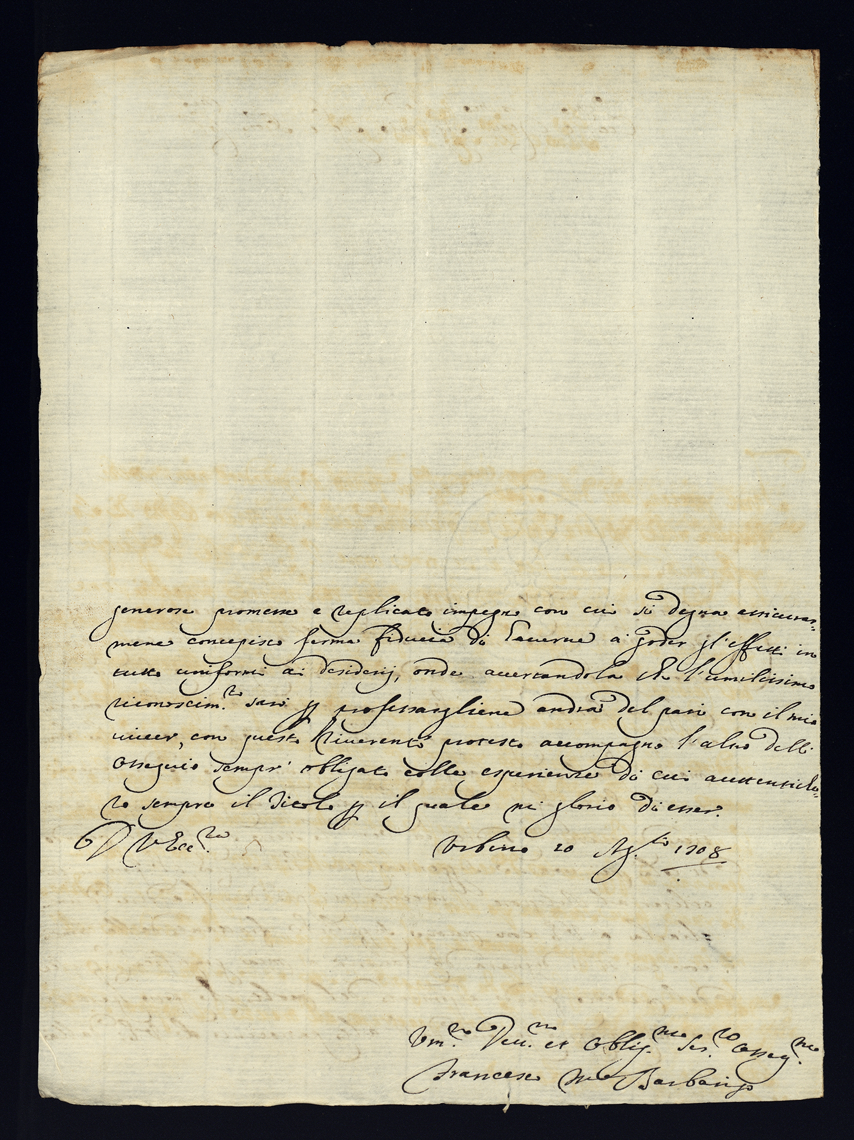 generose promesse e replicato impegno con cui si degna assicurar=
mene concepisco ferma fiducia di doverne a goder gl'effetti in
tutto uniformi ai desiderij, onde accertandola che l'umilissimo
riconoscim.to sarò professargliene andrà del pari con il mio
viver, con questa riverente protesta accompagno l'altra dell'
ossequio sempr' obligato colle esperienze di cui autenticherò
sempre il titolo per il quale mi glorio di esser.
D V Ecc.za Urbino 10 Ag.sto 1708
Um.mo Dev.mo et Oblig.mo Ser.re Osseq.mo
Francesco M.a Barbarigo